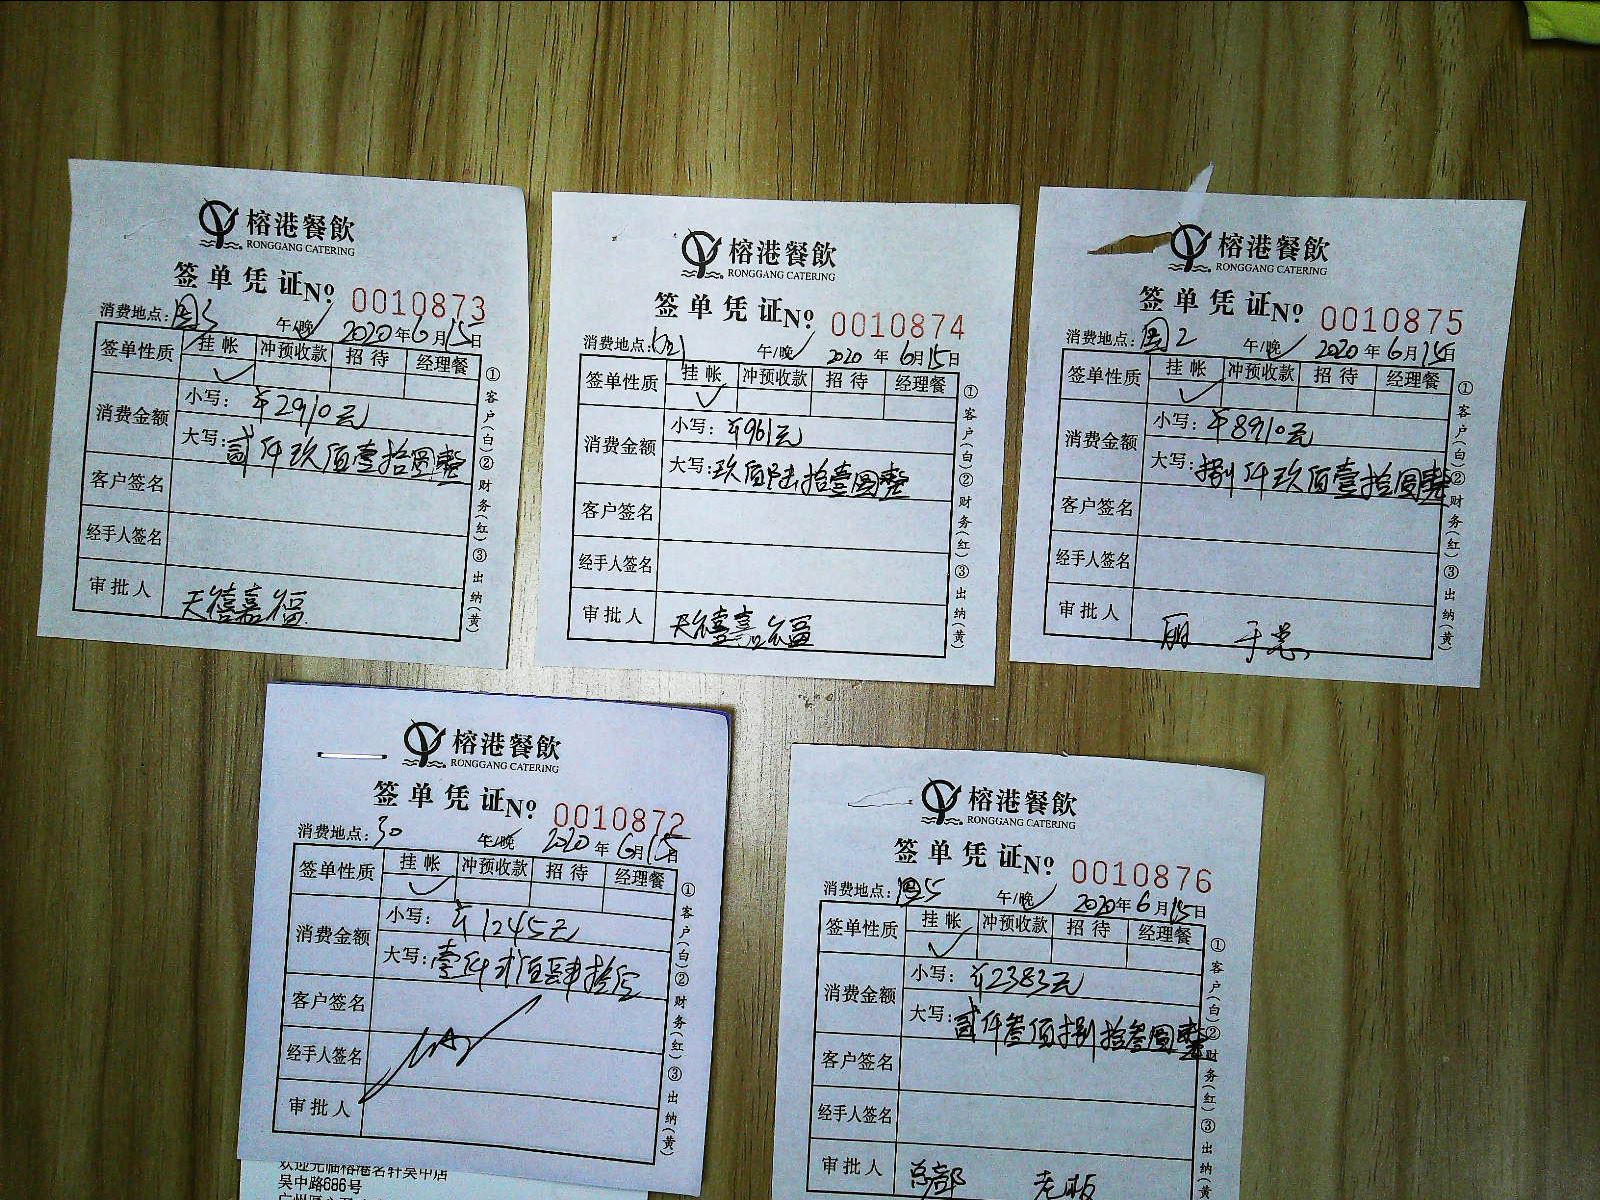 榕港餐飲
RONGGANG CATERING
签单凭证No 0010873
消费地点: 午/晚 2020年6月15日
签单性质 挂帐 冲预收款 招待 经理餐
消费金额
小写: ¥2910元
大写: 贰仟玖佰壹拾圆整
客户签名
经手人签名
审批人 天禧嘉福
①客户(白)②财务(红)③出纳(黄)
榕港餐飲
RONGGANG CATERING
签单凭证No 0010874
消费地点: 午/晚 2020年6月15日
签单性质 挂帐 冲预收款 招待 经理餐
消费金额
小写: ¥961元
大写: 玖佰陆拾壹圆整
客户签名
经手人签名
审批人 天禧嘉福
①客户(白)②财务(红)③出纳(黄)
榕港餐飲
RONGGANG CATERING
签单凭证No 0010875
消费地点: 午/晚 2020年6月15日
签单性质 挂帐 冲预收款 招待 经理餐
消费金额
小写: ¥8910元
大写: 捌仟玖佰壹拾圆整
客户签名
经手人签名
审批人
①客户(白)②财务(红)③出纳(黄)
榕港餐飲
RONGGANG CATERING
签单凭证No 0010872
消费地点: 30 午/晚 2020年6月15日
签单性质 挂帐 冲预收款 招待 经理餐
消费金额
小写: ¥1245元
大写: 壹仟贰佰肆拾伍
客户签名
经手人签名
审批人
①客户(白)②财务(红)③出纳(黄)
欢迎光临榕港名轩吴中店
吴中路686号
榕港餐飲
RONGGANG CATERING
签单凭证No 0010876
消费地点: 午/晚 2020年6月15日
签单性质 挂帐 冲预收款 招待 经理餐
消费金额
小写: ¥2383元
大写: 贰仟叁佰捌拾叁圆整
客户签名
经手人签名
审批人 总部 老板
①客户(白)②财务(红)③出纳(黄